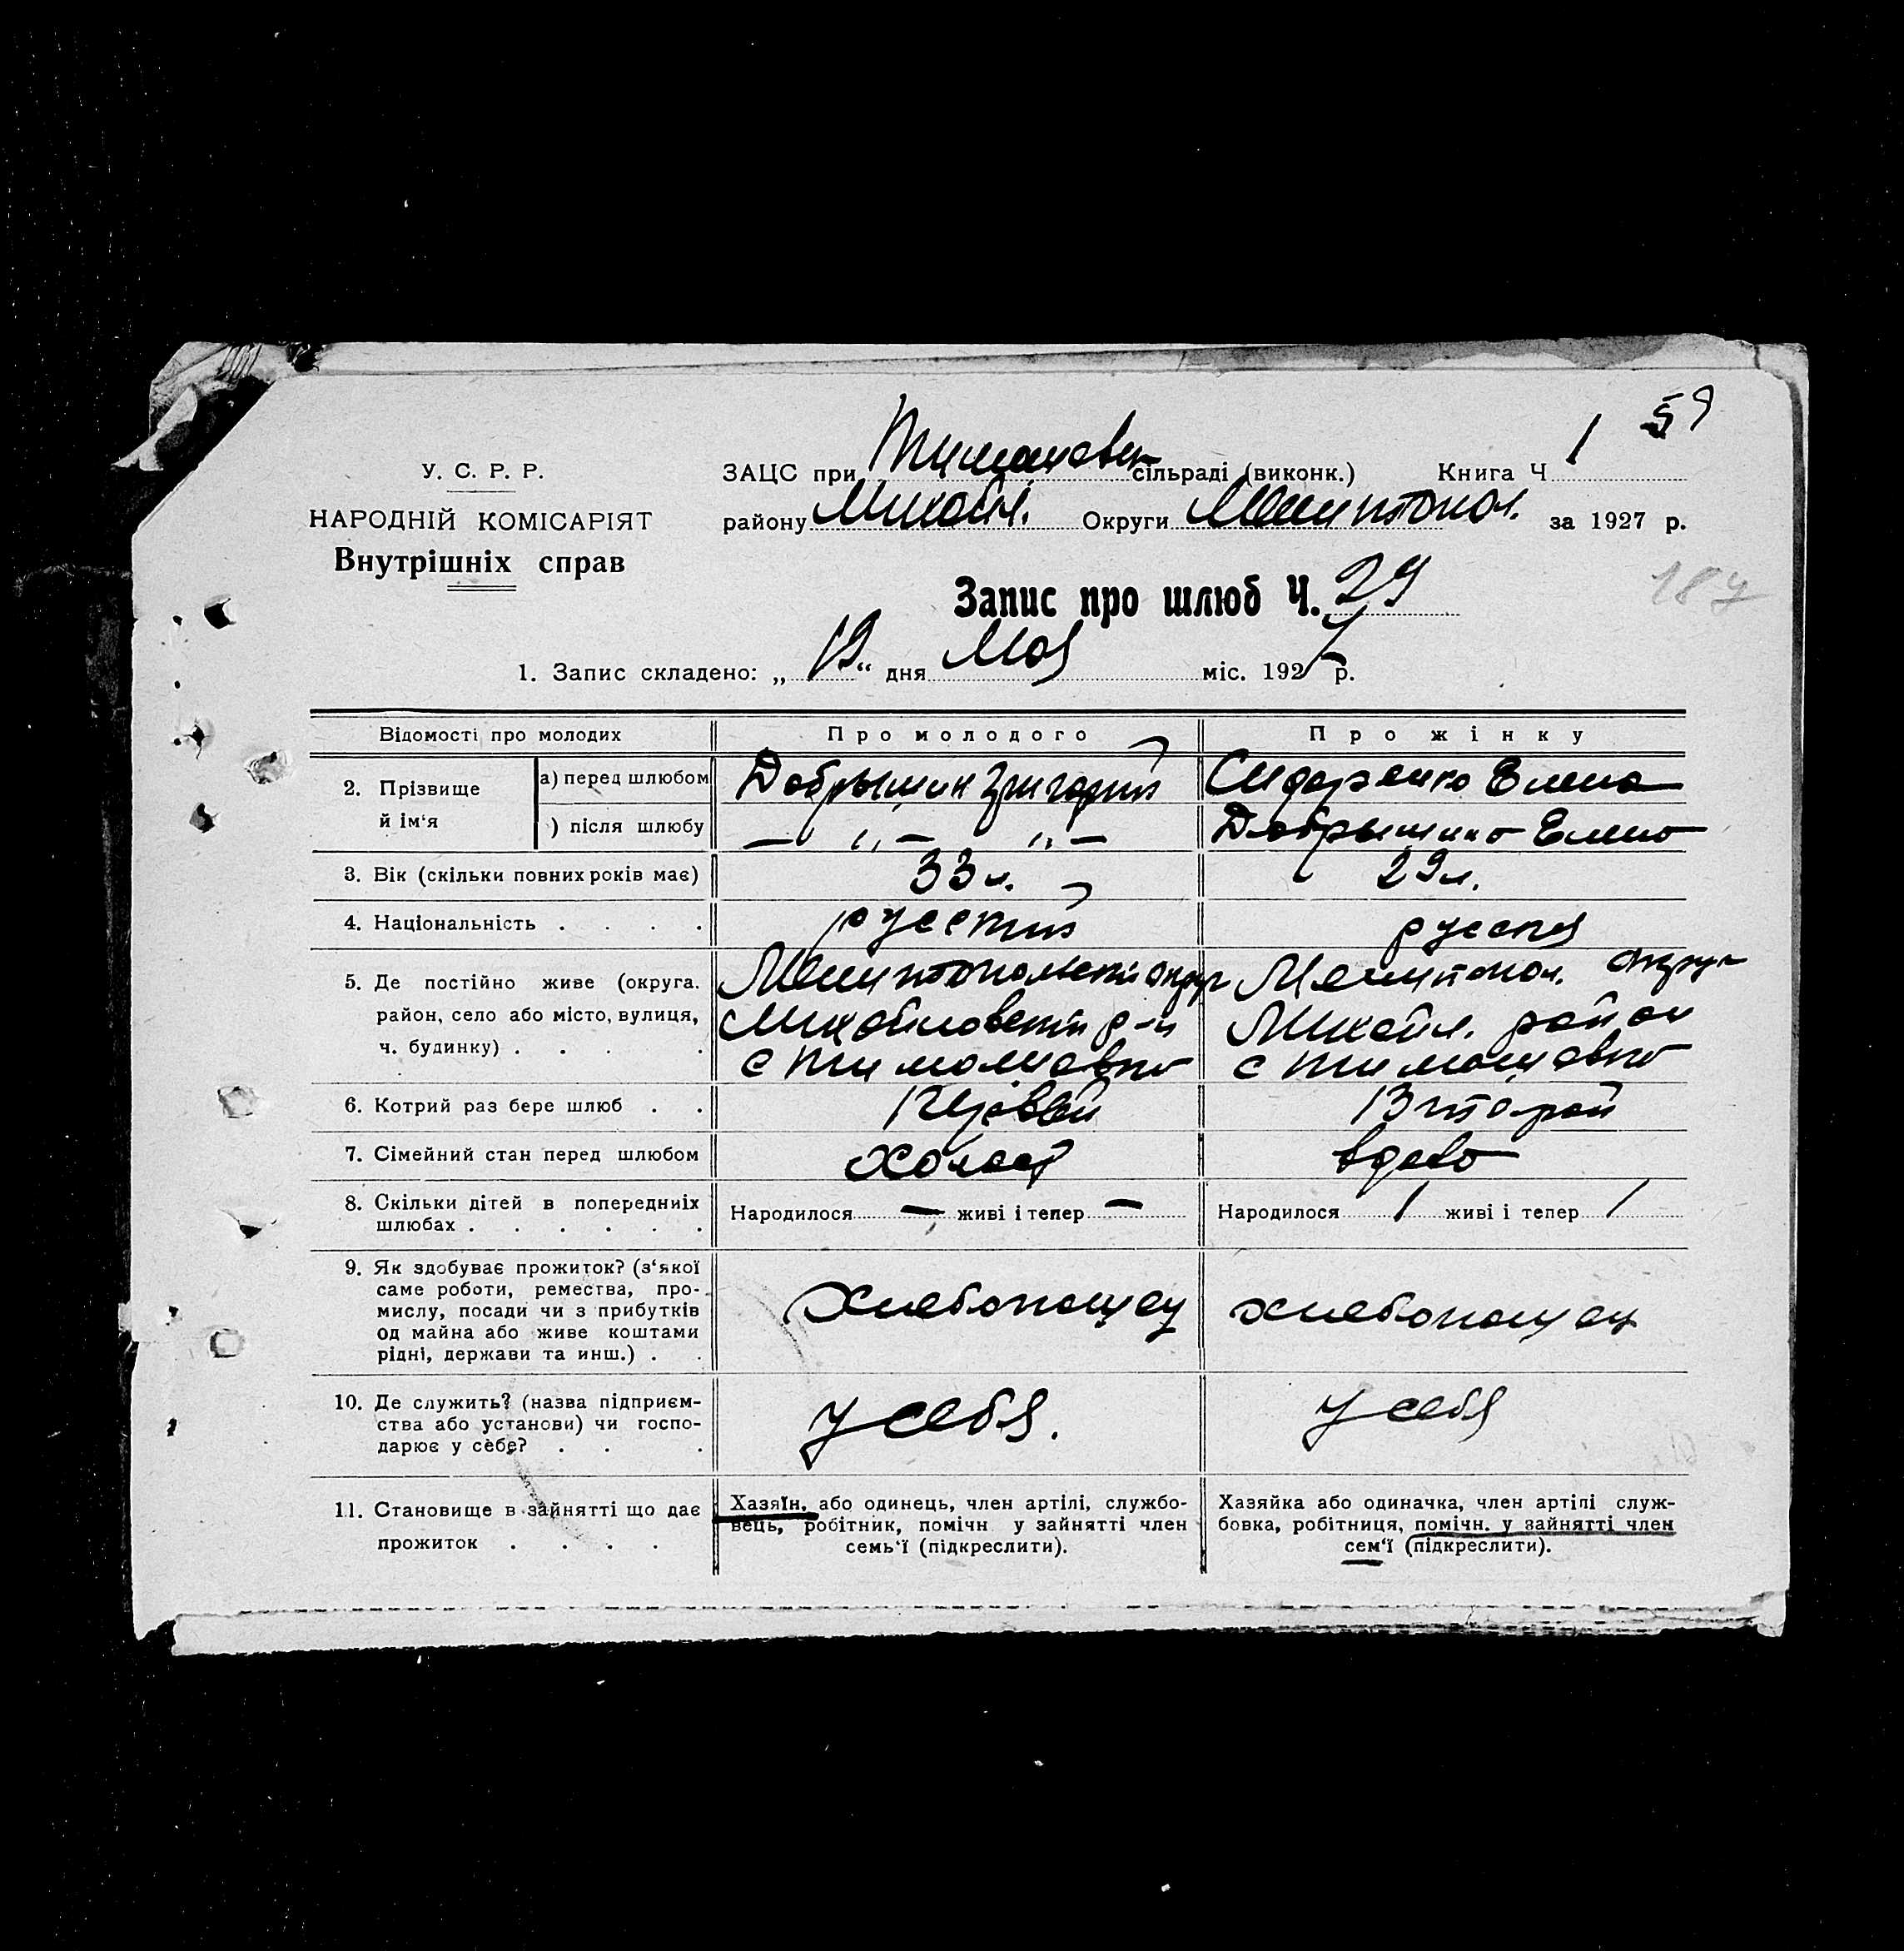 59
У. С. Р. Р.
НАРОДНІЙ КОМІСАРІЯТ
Внутрішніх справ
ЗАЦС при Тимашовск сільраді (виконк.) Книга Ч 1
району Михайл. Округи Мелитопол. за 1927 р.
187
Запис про шлюб Ч. 29
1. Запис складено: „ 19 “ дня Мая міс. 1927 р.
Відомості про молодих Про молодого Про жінку
2. Прізвище й ім‘я
а) перед шлюбом Добрынин Григорий Сидоренко Елена
) після шлюбу — „ — „ — Добрынина Елена
3. Вік (скільки повних років має) 33 л. 29 л.
4. Національність . . . . русский русская
5. Де постійно живе (округа. Мелитопольский округ Мелитопол. округ
район, село або місто, вулиця, Михайловский р-н Михайл. район
ч. будинку) . . . . с Тимашовка с Тимашовка
6. Котрий раз бере шлюб . . Первый Второй
7. Сімейний стан перед шлюбом холост вдова
8. Скільки дітей в попередниіх
шлюбах . . . . . . Народилося — живі і тепер — Народилося 1 живі і тепер 1
9. Як здобуває прожиток? (з‘якої
саме роботи, ремества, про-
мислу, посади чи з прибутків
од майна або живе коштами
рідні, держави та инш.) . . Хлебопашец хлебопашец
10. Де служить? (назва підприєм-
ства або установи) чи госпо-
дарює у себе? . . . у себя. у себя
11. Становище в зайнятті що дає
прожиток . . . .
Хазяїн, або одинець, член артілі, службо-
вець, робітник, помічн у зайнятті член
семь‘ї (підкреслити).
Хазяйка або одиначка, член артілі служ-
бовка, робітниця, помічн. у зайнятті член
сем‘ї (підкреслити).